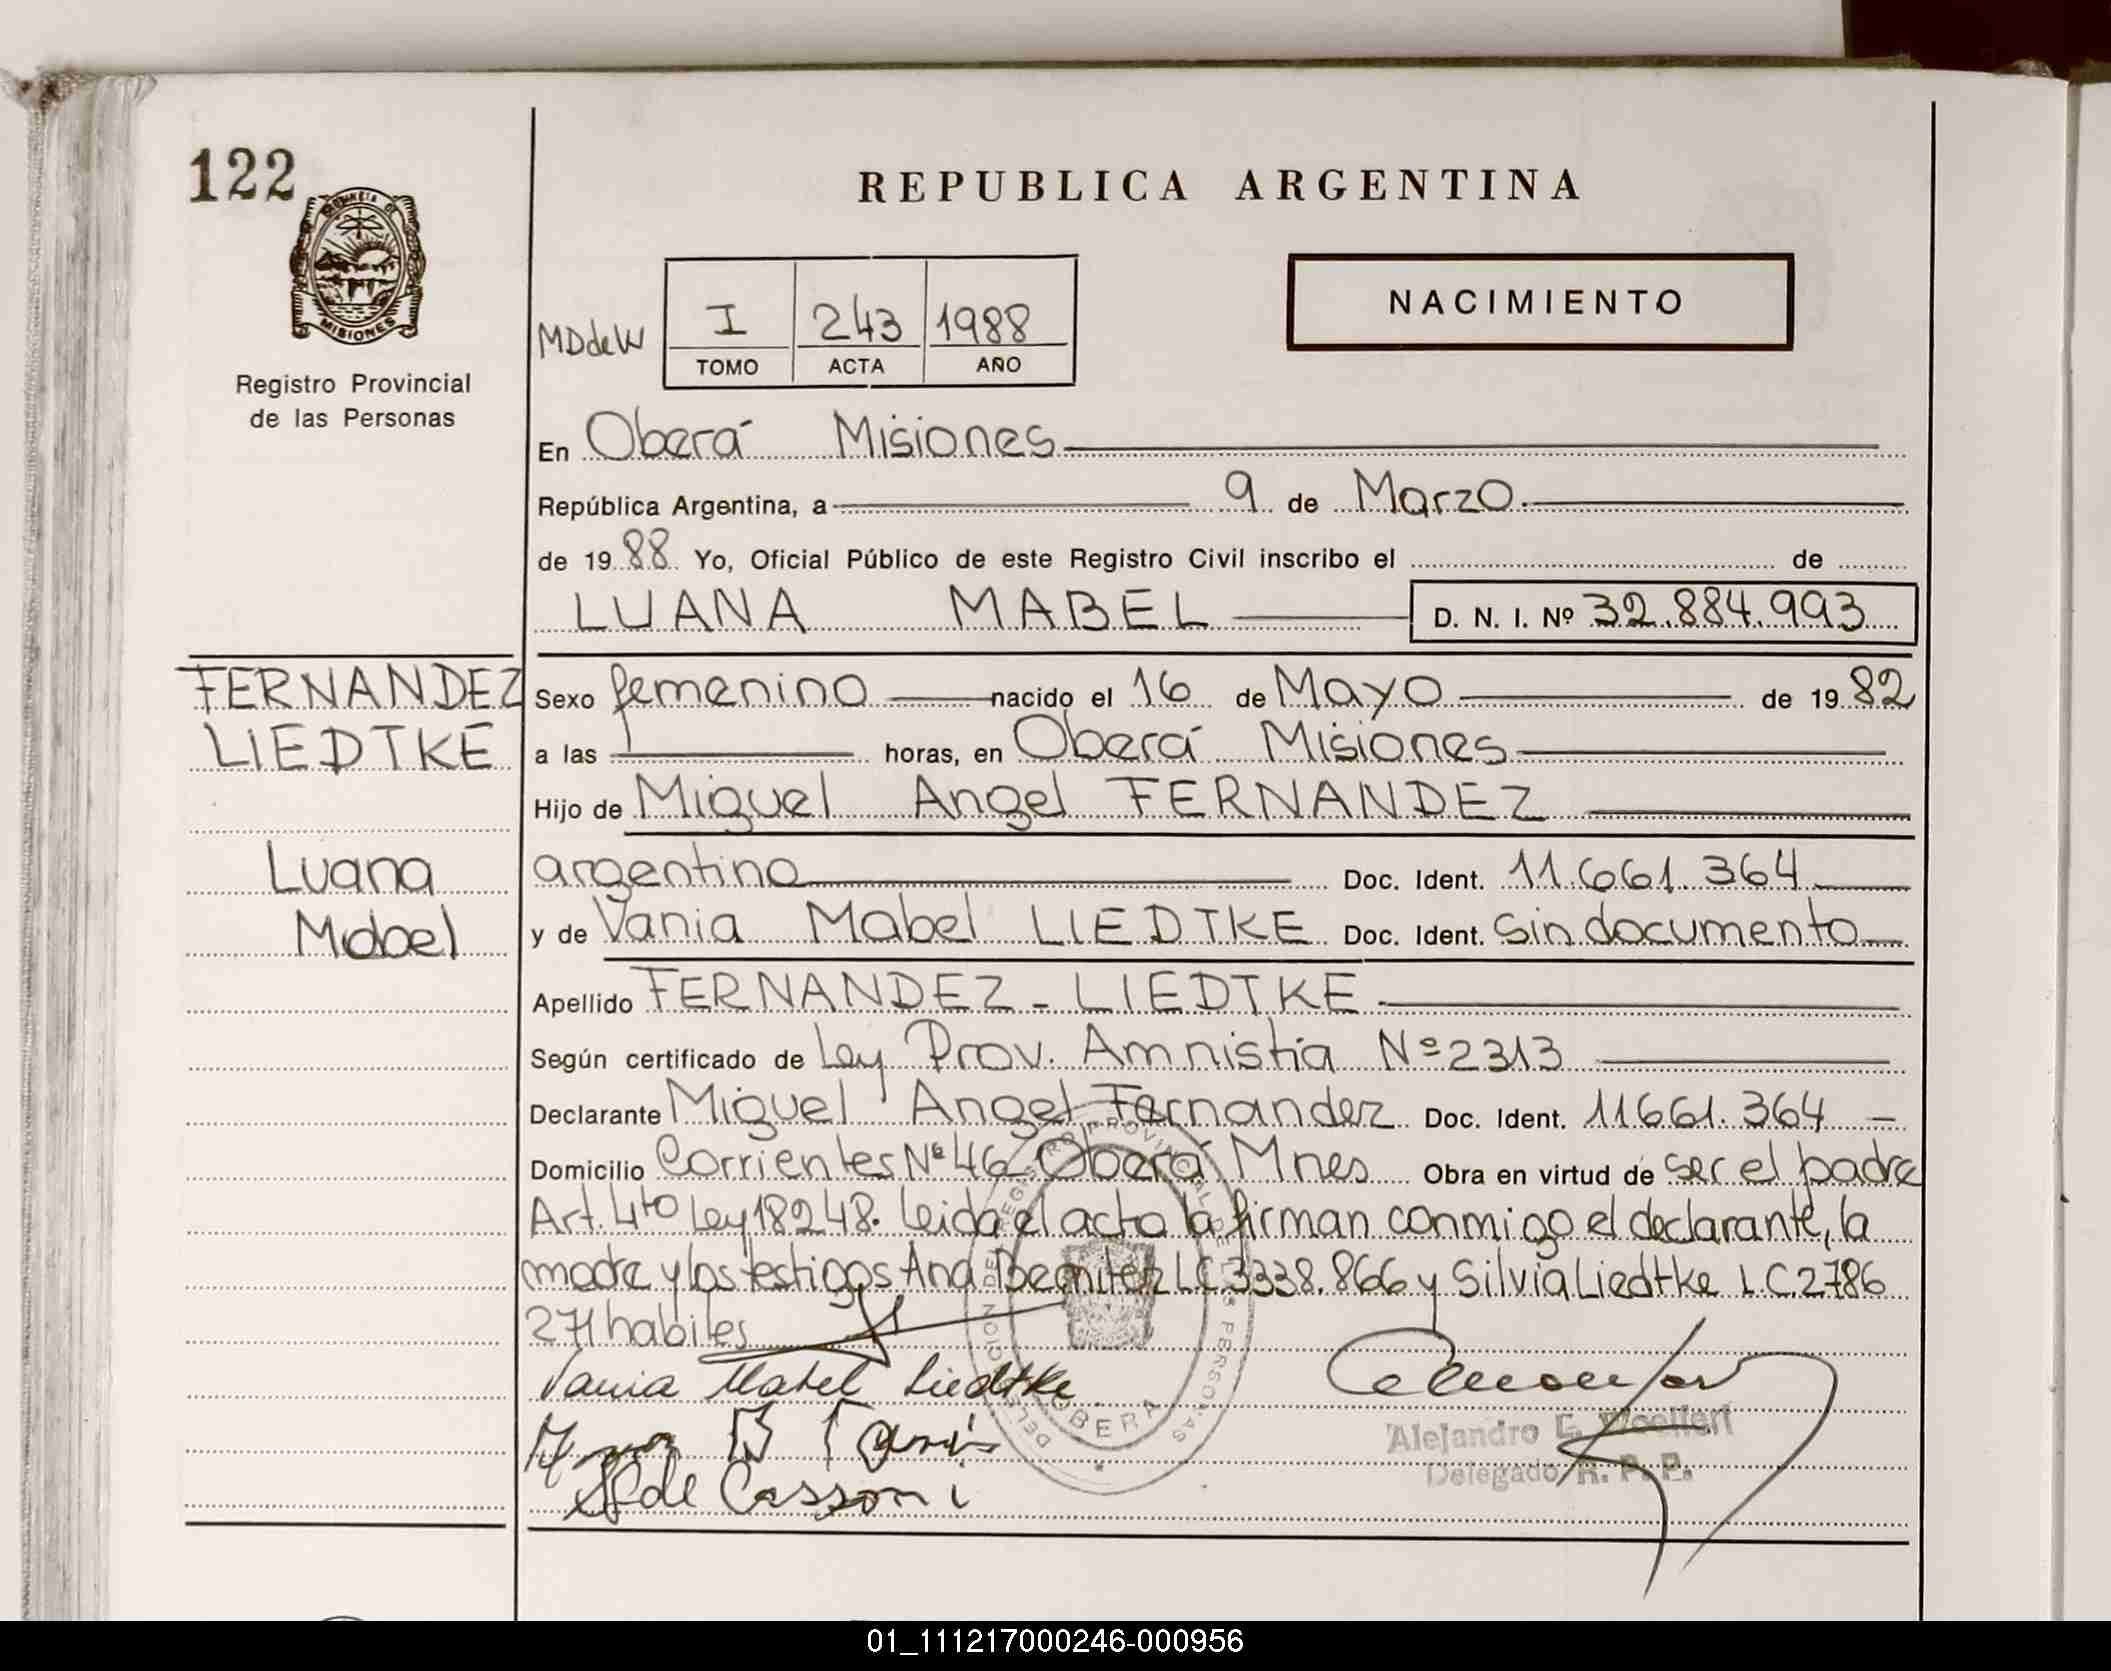 122
PROVINCIA DE
MISIONES
Registro Provincial
de las Personas
REPUBLICA ARGENTINA
NACIMIENTO
MDdeW
I 243 1988
TOMO ACTA AÑO
En Oberá Misiones
República Argentina, a 9 de Marzo
de 1988 Yo, Oficial Público de este Registro Civil inscribo el de
LUANA MABEL D. N. I. Nº 32.884.993
FERNANDEZ
LIEDTKE
Luana
Mabel
Sexo femenino nacido el 16 de Mayo de 1982
a las horas, en Oberá Misiones
Hijo de Miguel Angel FERNANDEZ
argentino Doc. Ident. 11.661.364
y de Vania Mabel LIEDTKE Doc. Ident. Sin documento
Apellido FERNANDEZ - LIEDTKE
Según certificado de Ley Prov. Amnistia Nº 2313
Declarante Miguel Angel Fernandez Doc. Ident. 11661.364
Domicilio Corrientes Nº 46 Oberá Mnes Obra en virtud de ser el padre
Art. 4to Ley 18248. Leida el acta la firman conmigo el declarante, la
madre y los testigos Ana Bemitez LC 3338.866 y Silvia Liedtke L.C. 2786
271 habiles
Vania Mabel Liedtke
de Cassoni
DELEGACION DE REGISTRO PROVINCIAL DE LAS PERSONAS
OBERA
Alejandro E.
Delegado R. P. P.
01_111217000246-000956